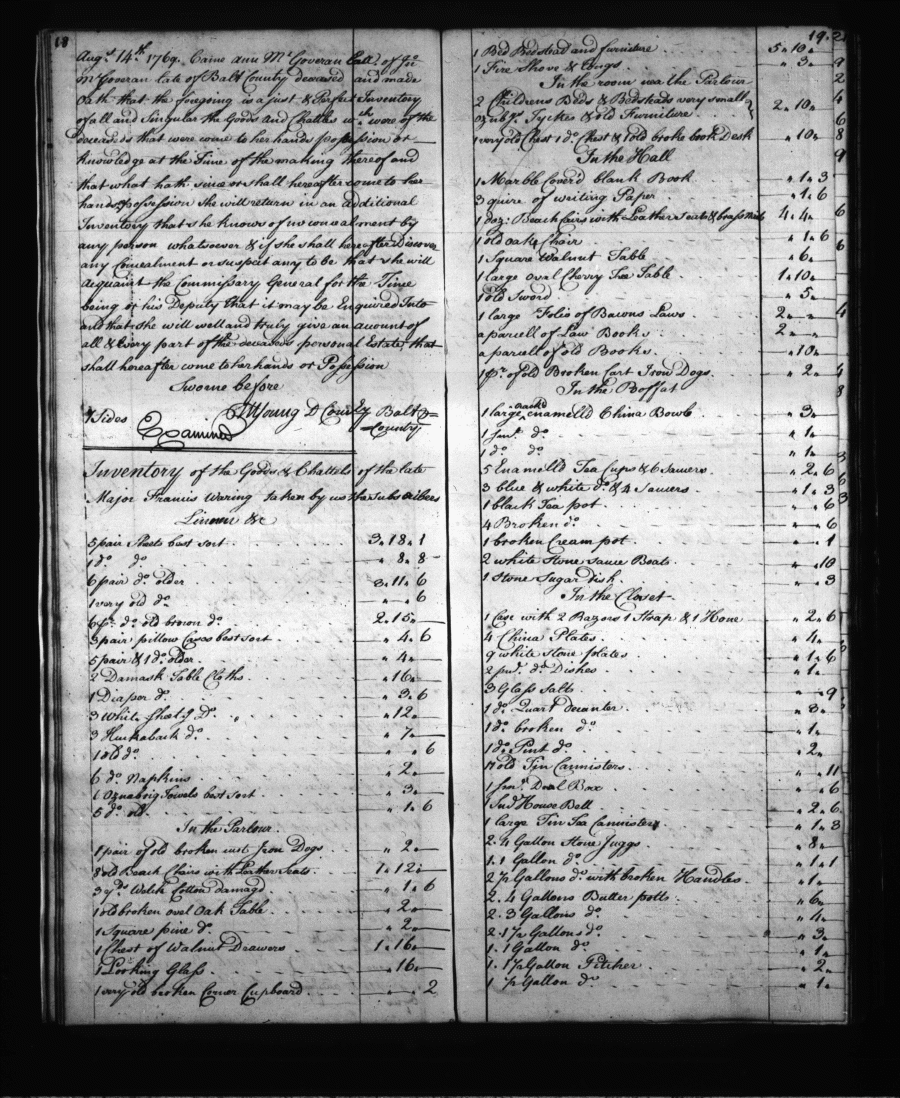 18
Augt. 14th. 1769. Came Ann McGoveran Exx. of Jno.
McGoveran late of Balt County deceased and made
Oath that the foregoing is a just & Perfect Inventory
of all and Singular the Goods and Chattles wch. were of the
deceaseds that were come to her hands possession or
Knowledge at the Time of the making thereof and
that what hath since or shall hereafter come to her
hands possession she will return in an additional
Inventory that she knows of no concealment by
any person whatsoever & if she shall hereafter Discover
any Concealment or suspect any to be that she will
acquaint the Commissary General for the Time
being or his Deputy that it may be Enquired Into
and that she will well and truly give an account of
all & Every part of the deceaseds personal Estate, that
shall hereafter come to her hands or Possession
Sworne before
Young D Comsy Balt
County
7 Sides
Examined
Inventory of the Goods & Chattels of the late
Major Francis Waring taken by us the Subscribers
Linnen &c
5 pair Sheets best sort 3.18.1
1 do. do. " 8.8
6 pair do. older 3.11.6
1 very old do. " " 6
6 pr. do. old brown do. 2.15.
3 pair pillow Cases best sort " 4.6
5 pair & 1 do. older " 4.
2 Damask Table Cloths " 16.
1 Diaper do. " 3.6
3 White Sheetg. Do. " 12.
3 Huckaback do. " 7.
1 old do. " " 6
6 do. Napkins " 2.
6 Oznabrig Towels best sort " 3.
5 do. old " 1.6
In the Parlour
1 pair of old broken cast Iron Dogs " 2.
8 old Beach Chairs with Leather Seats 1.12.
3 yds. Welch Cotton damagd. " 1.6
1 old broken oval Oak Table " 2.
1 Square pine do. " 2.
1 Chest of Walnut Drawers 1.16.
1 Looking Glass " 16.
1 very old broken Corner Cupboard " " 2
19.
1 Bed Bedstead and furniture 5.10.
1 Fire Shove & Tongs " 3.
In the room over the Parlour
2 Childrens Beds & Bedsteads very small
Oznabgs. Tyckes & old Furniture 2.10.
1 very old Chest 1 do. Chest & 1 old broke book Desk " 10.
In the Hall
1 Marble Cover'd blank Book " 1.3
3 quire of writing Paper " 1.6
1 doz: Beach Chairs with Leather Seats & brass Nails 4.4.
1 old oak Chair " 1.6
1 Square Walnut Table " 6.
1 large oval Cherry Tea Table 1.10.
1 old Sword " 5.
1 large Folio of Bacons Laws 2.
a parcell of Law Books 2.
a parcell of old Books " 10.
1 pr. of old Broken Cast Iron Dogs " 2.
In the Boffat
1 large crackd enamelld China Bowle " 3.
1 smr. do. " 1.
1 do. do. " 1.
5 Enamelld Tea Cups & 6 Saucers " 2.6
3 blue & white do. & 4 Saucers " 1.3
1 black Tea pot " " 6
4 Broken do. " " 6
1 broken Cream pot " " 1
2 white Stone Sauce Boats " " 10
1 Stone Sugar dish " " 3
In the Closet
1 Case with 2 Razors 1 Strap & 1 Hone " 2.6
4 China Plates " 4.
9 white Stone plates " 1.6
2 do. Dishes " 1.
3 Glass Salts " " 9
1 do. Quart Decanter " 3.
1 do. broken do. " 1.
1 do. Pint do. " 2.
17 old Tin Cannisters " " 11
1 smr. Deal Box " " 6
1 House Bell " 2.6
1 large Tin Tea Cannister " 1.3
2. 4 Gallon Stone Juggs " 8.
1. 1 Gallon do. " 1.1
2 1/2 Gallons do. with broken Handles " 1.
2. 4 Gallons Butter potts " 6.
2. 3 Gallons do. " 4.
2. 1 1/2 Gallons do. " 3.
1. 1 Gallon do. " 1.
1. 1/2 Gallon Pitcher " 2.
1 1/2 Gallon do. " 1.